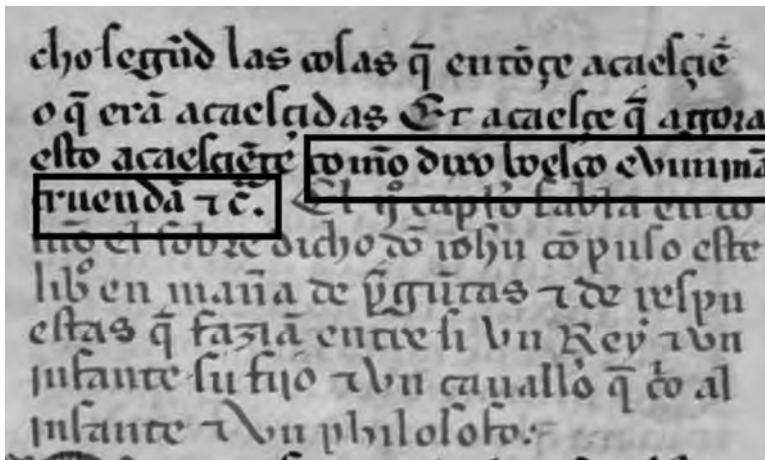 cho segũd las cosas q̃ entõçe acaesçiẽ
o q̃ erã acaesçidas Et acaesçe q̃ agora
esto co mõ dixo
⁊ c̃. El ijº capłº fabla en co
mõ el sobre dicho dõ iohñ cõpuso este
libº en mañã de p̃gũtas ⁊ de respu
estas q̃ faziã entre si vn Rey ⁊ vn
jnfante su fijo ⁊ vn cauallo q̃ al
jnfante ⁊ vn philosofo